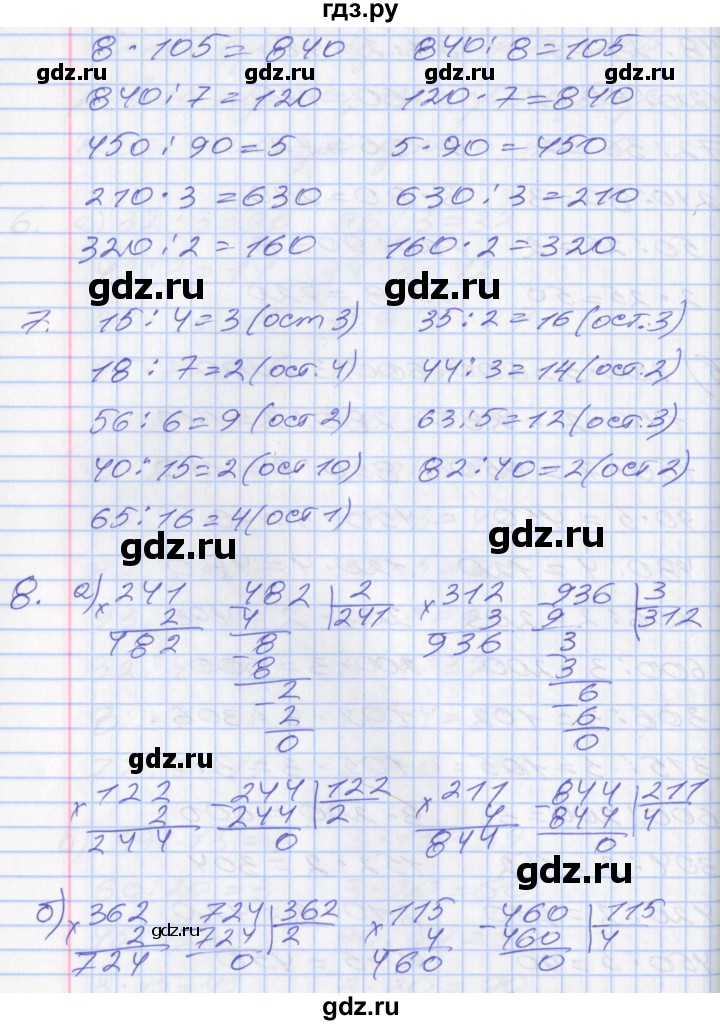 гдз.ру
8 · 105 = 840 840 : 8 = 105
gdz.ru gdz.ru
840 : 7 = 120 120 · 7 = 840
450 : 90 = 5 5 · 90 = 450
210 · 3 = 630 630 : 3 = 210
320 : 2 = 160 160 · 2 = 320
gdz.ru gdz.ru
7. 15 : 4 = 3 (ост 3) 35 : 2 = 16 (ост. 3)
18 : 7 = 2 (ост. 4) 44 : 3 = 14 (ост. 2)
56 : 6 = 9 (ост 2) 63 : 5 = 12 (ост. 3)
40 : 15 = 2 (ост 10) 82 : 40 = 2 (ост 2)
65 : 16 = 4 (ост 1)
gdz.ru gdz.ru
8. а) × 241 - 482 | 2 × 312 - 936 | 3
2 4 241 3 9 312
482 - 8 936 - 3
8 3
- 2 - 6
2 6
0 0
gdz.ru
× 122 - 244 | 122 × 211 - 844 | 211
2 244 2 4 844 4
244 0 844 0
gdz.ru
б) × 362 - 724 | 362 × 115 - 460 | 115
2 724 2 4 460 4
724 0 460 0
gdz.ru
gdz.ru